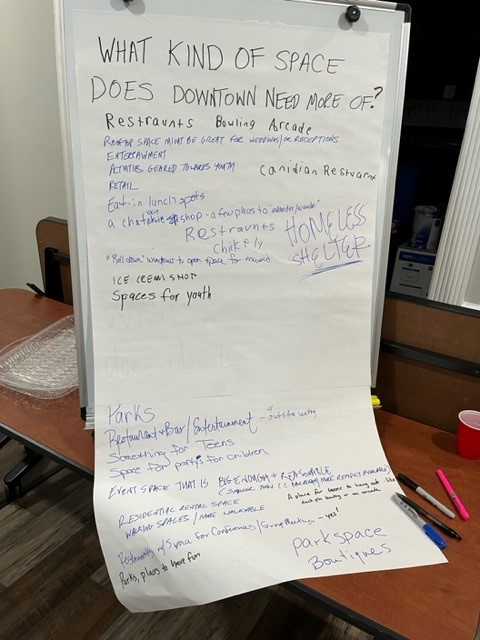 WHAT KIND OF SPACE
DOES DOWNTOWN NEED MORE OF?
Restraunts Bowling Arcade
ROOFTOP SPACE MIGHT BE GREAT FOR WEDDINGS/OR RECEPTIONS
ENTERTAINMENT
ACTIVITIES GEARED TOWARDS YOUTH
Canidian Restraunt
RETAIL
Eat-in lunch spots
a shop - a few places to "meander/wander"
Restraunts
HOMELESS
SHELTER
"Roll down" windows to open space for
ICE CREAM SHOP
Spaces for youth
Parks
Restaurant + Bar/Entertainment - outside
Something for Teens
Space for party's for children
EVENT SPACE THAT IS BIG ENOUGH + REASONABLE
RESIDENTIAL RENTAL SPACE
WALKING SPACES / MORE WALKABLE
A place for teens to hang out like
Restaurants w/ Space for Conferences/Group Meetings - yes!
Parks, places to have fun
parkspace
Boutiques